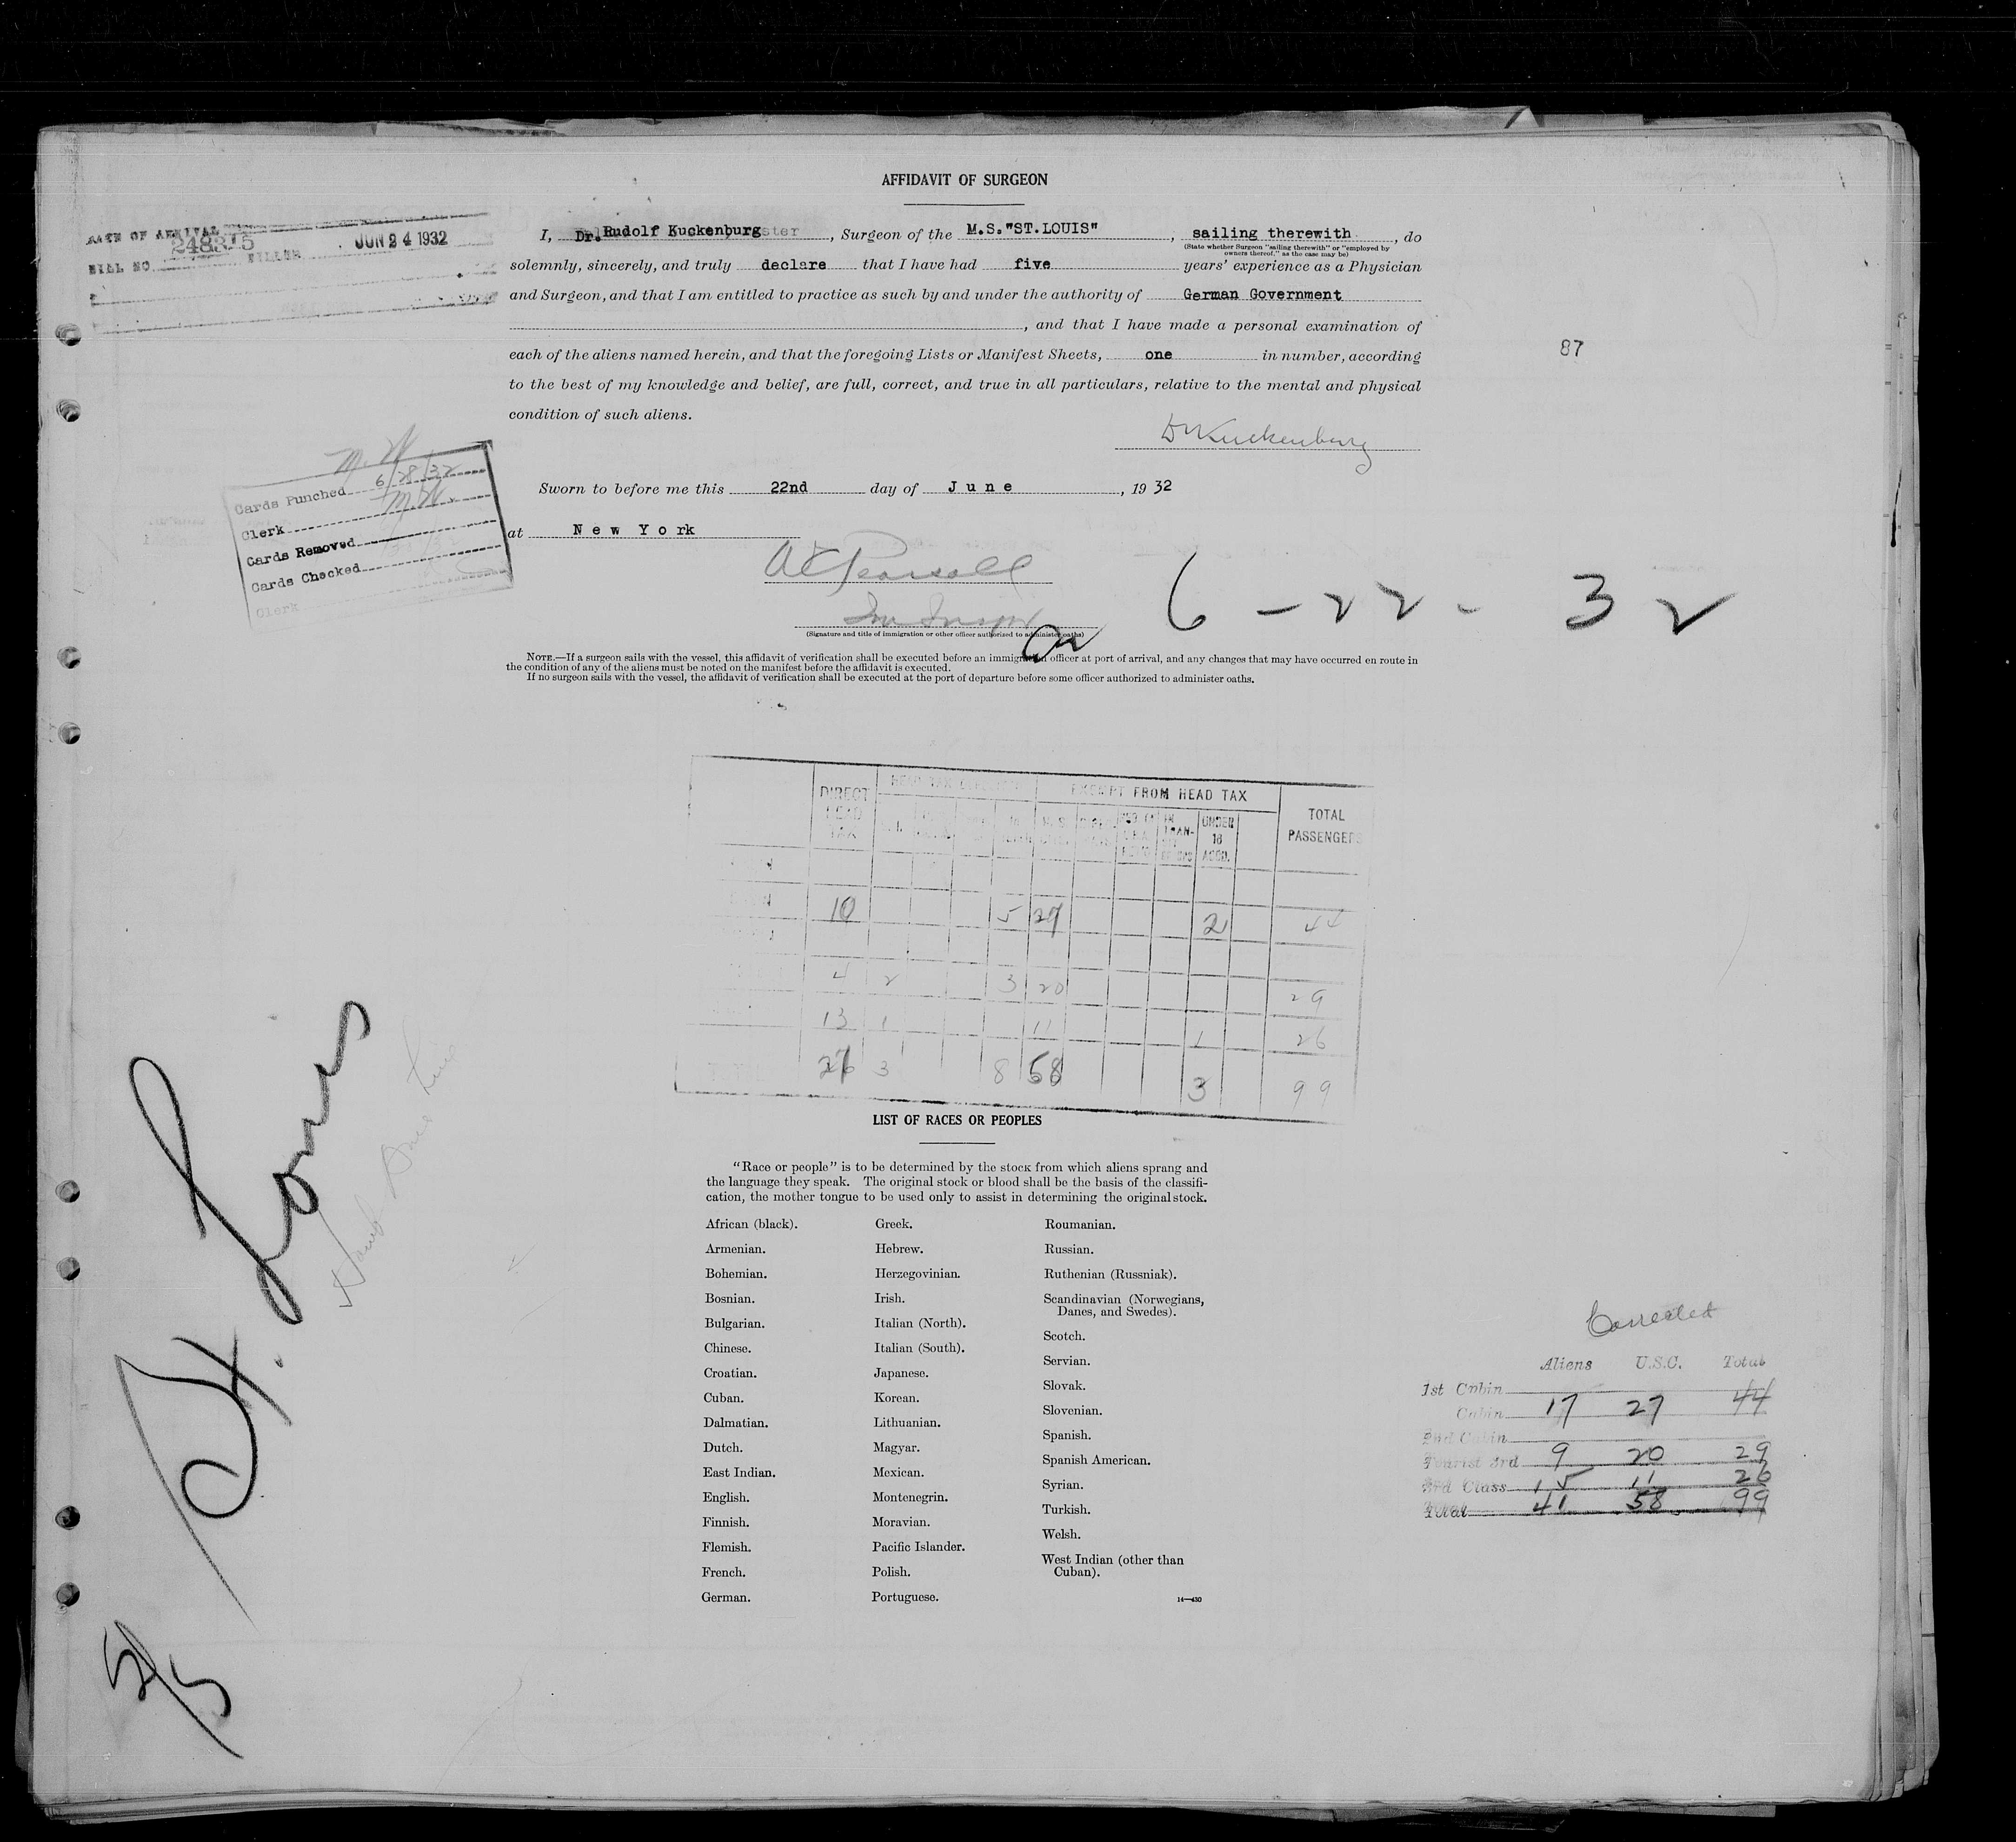 AFFIDAVIT OF SURGEON
DATE OF ARRIVAL
248315 JUN 24 1932
BILL NO.
I, Dr. Rudolf Kuckenburg, Surgeon of the M.S."ST.LOUIS", sailing therewith, do
(State whether Surgeon "sailing therewith" or "employed by
owners thereof," as the case may be)
solemnly, sincerely, and truly declare that I have had five years' experience as a Physician
and Surgeon, and that I am entitled to practice as such by and under the authority of German Government
, and that I have made a personal examination of
each of the aliens named herein, and that the foregoing Lists or Manifest Sheets, one in number, according
87
to the best of my knowledge and belief, are full, correct, and true in all particulars, relative to the mental and physical
condition of such aliens.
Dr Kuckenburg
M.W.
Cards Punched 6/28/32
Clerk M.W.
Cards Removed
Cards Checked
Clerk
Sworn to before me this 22nd day of June, 1932
at New York
6-22-32
(Signature and title of immigration or other officer authorized to administer oaths)
NOTE.—If a surgeon sails with the vessel, this affidavit of verification shall be executed before an immigration officer at port of arrival, and any changes that may have occurred en route in
the condition of any of the aliens must be noted on the manifest before the affidavit is executed.
If no surgeon sails with the vessel, the affidavit of verification shall be executed at the port of departure before some officer authorized to administer oaths.
DIRECT HEAD TAX EXEMPT FROM HEAD TAX TOTAL PASSENGERS
UNDER 16 ACCD.
10 5 27 2 44
4 2 3 20 29
13 1 11 1 26
3 8 58 3 99
St. Louis
5/5
LIST OF RACES OR PEOPLES
"Race or people" is to be determined by the stock from which aliens sprang and
the language they speak. The original stock or blood shall be the basis of the classifi-
cation, the mother tongue to be used only to assist in determining the original stock.
African (black).
Armenian.
Bohemian.
Bosnian.
Bulgarian.
Chinese.
Croatian.
Cuban.
Dalmatian.
Dutch.
East Indian.
English.
Finnish.
Flemish.
French.
German.
Greek.
Hebrew.
Herzegovinian.
Irish.
Italian (North).
Italian (South).
Japanese.
Korean.
Lithuanian.
Magyar.
Mexican.
Montenegrin.
Moravian.
Pacific Islander.
Polish.
Portuguese.
Roumanian.
Russian.
Ruthenian (Russniak).
Scandinavian (Norwegians,
Danes, and Swedes).
Scotch.
Servian.
Slovak.
Slovenian.
Spanish.
Spanish American.
Syrian.
Turkish.
Welsh.
West Indian (other than
Cuban).
14—430
Corrected
Aliens U.S.C. Total
1st Cabin
Cabin 17 27 44
2nd Cabin
Tourist 3rd 9 20 29
3rd Class 15 11 26
Total 41 58 99